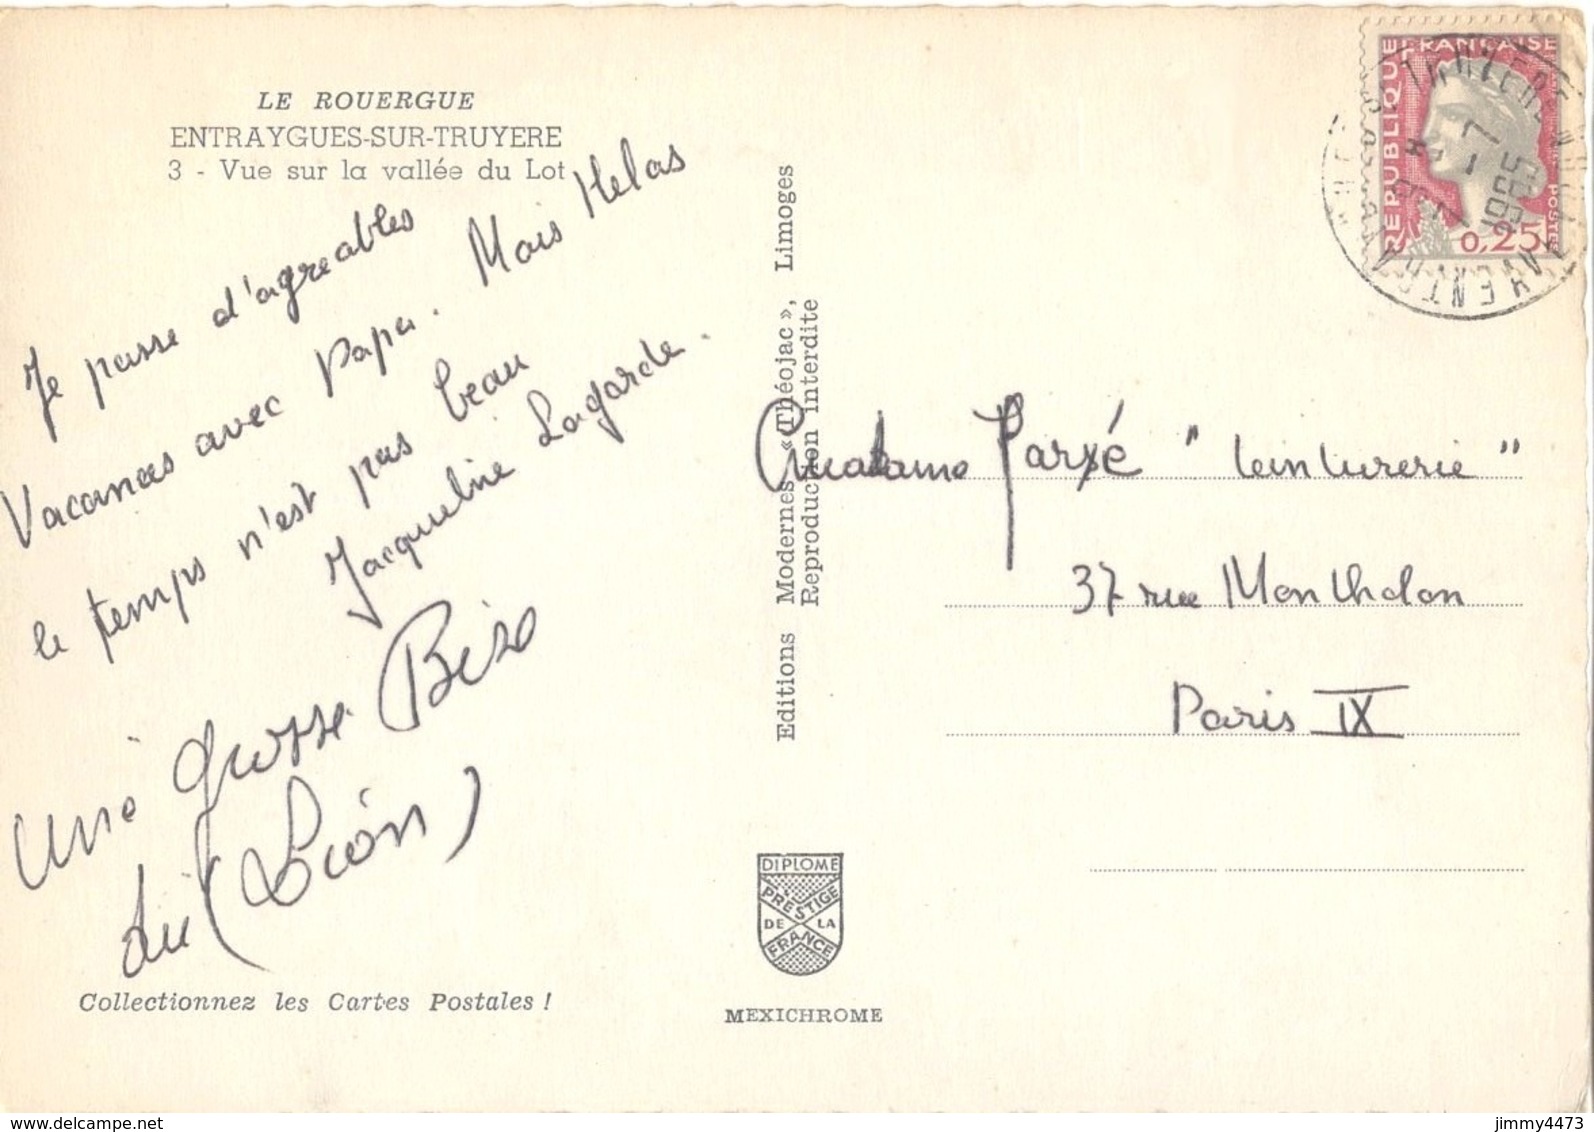 LE ROUERGUE
ENTRAYGUES-SUR-TRUYERE
3 - Vue sur la vallée du Lot
Je passe d'agreables
Vacances avec Papa. Mais Helas
le temps n'est pas beau
Jacqueline Lagarde.
Une grosse Bise
du (Lion)
Collectionnez les Cartes Postales !
Editions Modernes « Théojac », Limoges
Reproduction interdite
DIPLOME
PRESTIGE
DE LA
FRANCE
MEXICHROME
REPUBLIQUE FRANÇAISE
POSTES
0,25
Madame Parxé "teinturerie"
37 rue Montholon
Paris IX
delcampe.net
jimmy4473